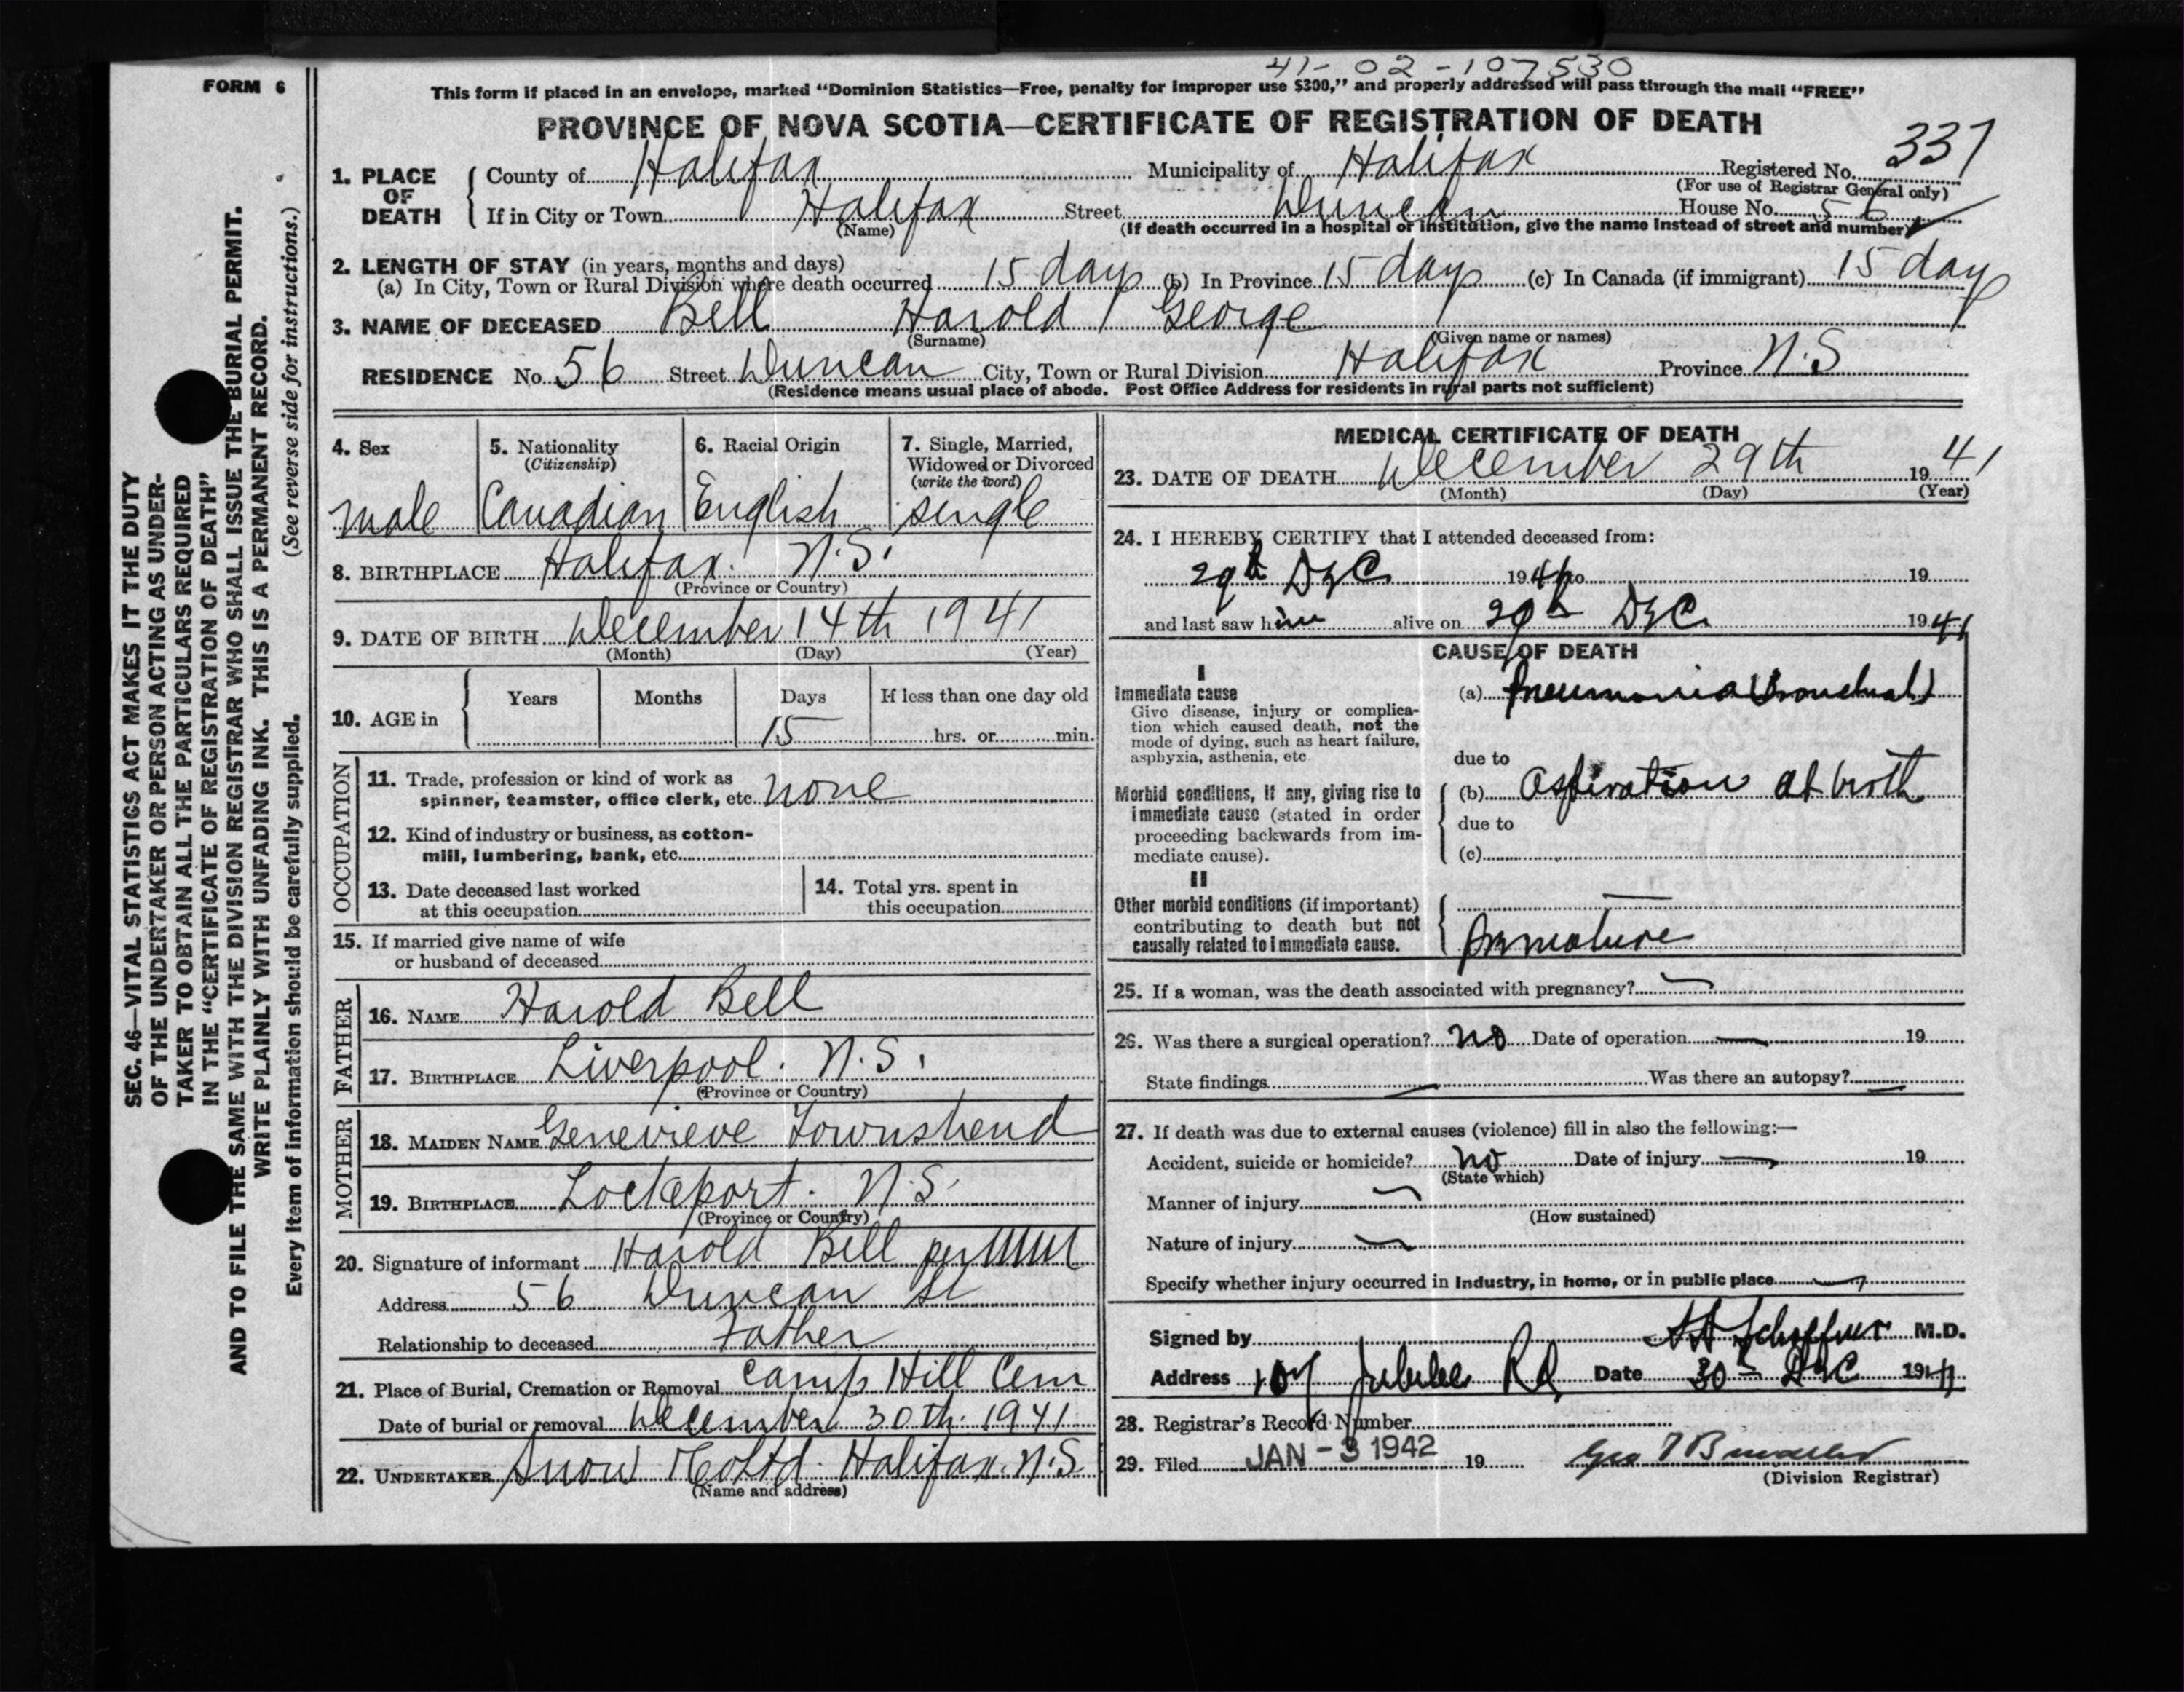 41-02-107530
FORM 6
This form if placed in an envelope, marked "Dominion Statistics—Free, penalty for improper use $300," and properly addressed will pass through the mail "FREE"
PROVINCE OF NOVA SCOTIA—CERTIFICATE OF REGISTRATION OF DEATH
1. PLACE OF DEATH { County of Halifax Municipality of Halifax Registered No. 337
(For use of Registrar General only)
If in City or Town Halifax Street Duncan House No. 56
(Name) (If death occurred in a hospital or institution, give the name instead of street and number)
2. LENGTH OF STAY (in years, months and days)
(a) In City, Town or Rural Division where death occurred 15 days (b) In Province 15 days (c) In Canada (if immigrant) 15 days
3. NAME OF DECEASED Bell Harold George
(Surname) (Given name or names)
RESIDENCE No. 56 Street Duncan City, Town or Rural Division Halifax Province N.S
(Residence means usual place of abode. Post Office Address for residents in rural parts not sufficient)
4. Sex male
5. Nationality (Citizenship) Canadian
6. Racial Origin English
7. Single, Married, Widowed or Divorced (write the word) single
8. BIRTHPLACE Halifax. N.S.
(Province or Country)
9. DATE OF BIRTH December 14th 1941
(Month) (Day) (Year)
10. AGE in { Years Months Days If less than one day old
15 hrs. or min.
OCCUPATION
11. Trade, profession or kind of work as
spinner, teamster, office clerk, etc. none
12. Kind of industry or business, as cotton-
mill, lumbering, bank, etc.
13. Date deceased last worked
at this occupation
14. Total yrs. spent in
this occupation
15. If married give name of wife
or husband of deceased
FATHER
16. NAME Harold Bell
17. BIRTHPLACE Liverpool. N.S.
(Province or Country)
MOTHER
18. MAIDEN NAME Genevieve Townshend
19. BIRTHPLACE Lockeport. N.S.
(Province or Country)
20. Signature of informant Harold Bell per
Address 56 Duncan St
Relationship to deceased Father
21. Place of Burial, Cremation or Removal Camp Hill Cem
Date of burial or removal December 30th. 1941
22. UNDERTAKER Snow & Co Ltd. Halifax. N.S
(Name and address)
MEDICAL CERTIFICATE OF DEATH
23. DATE OF DEATH December 29th 1941
(Month) (Day) (Year)
24. I HEREBY CERTIFY that I attended deceased from:
29th Dec 1941 to 19
and last saw him alive on 29th Dec 1941
CAUSE OF DEATH
I
Immediate cause
Give disease, injury or complica-
tion which caused death, not the
mode of dying, such as heart failure,
asphyxia, asthenia, etc
(a) Pneumonia (bronchial)
due to
Morbid conditions, if any, giving rise to
immediate cause (stated in order
proceeding backwards from im-
mediate cause).
(b) Aspiration at birth
due to
(c)
II
Other morbid conditions (if important)
contributing to death but not
causally related to immediate cause.
Premature
25. If a woman, was the death associated with pregnancy? —
26. Was there a surgical operation? No Date of operation — 19
State findings — Was there an autopsy? —
27. If death was due to external causes (violence) fill in also the following:—
Accident, suicide or homicide? No Date of injury — 19
(State which)
Manner of injury —
(How sustained)
Nature of injury —
Specify whether injury occurred in industry, in home, or in public place —
Signed by M.D.
Address Jubilee Rd Date 30th Dec 1941
28. Registrar's Record Number
29. Filed JAN - 3 1942 19
(Division Registrar)
SEC. 46—VITAL STATISTICS ACT MAKES IT THE DUTY
OF THE UNDERTAKER OR PERSON ACTING AS UNDER-
TAKER TO OBTAIN ALL THE PARTICULARS REQUIRED
IN THE "CERTIFICATE OF REGISTRATION OF DEATH"
AND TO FILE THE SAME WITH THE DIVISION REGISTRAR WHO SHALL ISSUE THE BURIAL PERMIT.
WRITE PLAINLY WITH UNFADING INK. THIS IS A PERMANENT RECORD.
Every item of information should be carefully supplied. (See reverse side for instructions.)